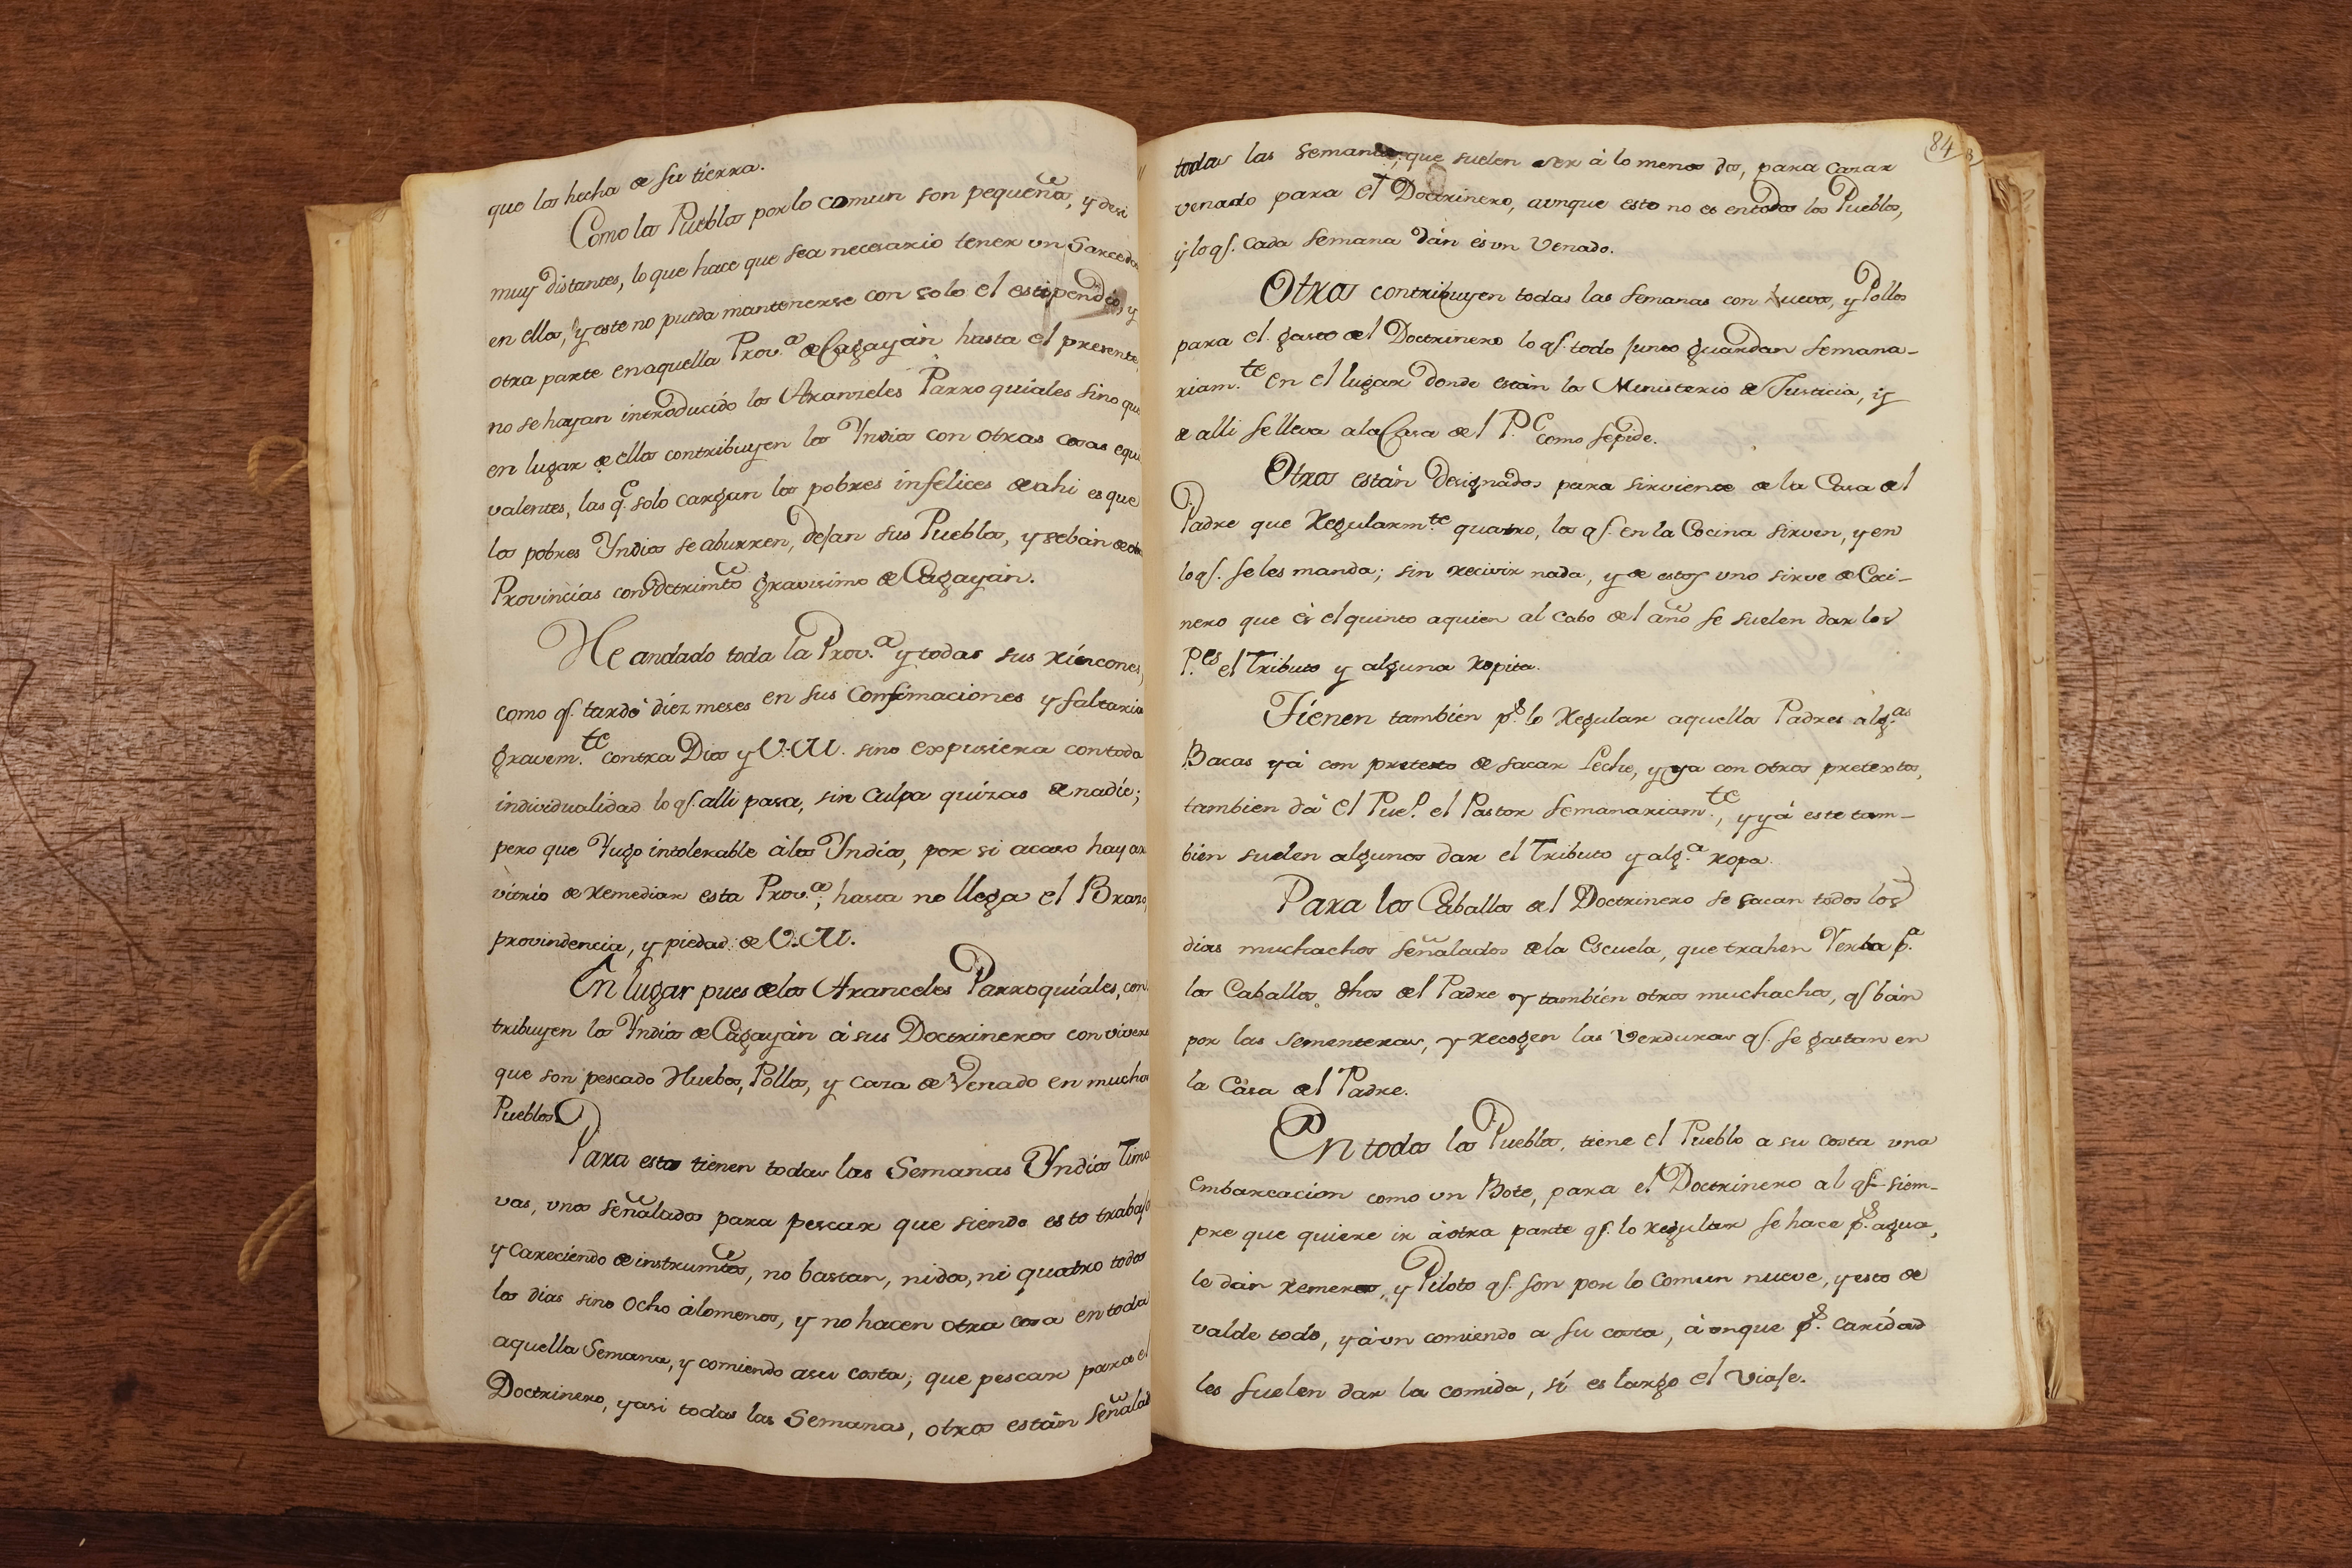 que los hecha de su tierra.
Como los Pueblos por lo comun son pequeños, y desi
muy distantes, lo que hace que sea necesario tener un Sacerdo
en ellos, y este no pueda mantenerse con solo el estipendio, y
otra parte en aquella Prov.ª de Cagayán hasta el presente,
no se hayan introducido los Aranzeles Parroquiales sino que
en lugar de ellos contribuyen los Yndios con otras cosas equi
valentes, las q.e solo cargan los pobres infelices de ahi es que
los pobres Yndios se aburren, dejan sus Pueblos, y se bán de otr
Provincias con detrimto gravisimo de Cagayán.
He andado toda la Prov.ª y todas sus rincones,
como q.e tardé diez meses en sus Confirmaciones y faltaria
gravem.te contra Dios y V.M. sino expusiera con toda
individualidad lo q.e alli pasa, sin culpa quizas de nadie;
pero que Yugo intolerable á los Yndios, por si acaso hay ar
vitrio de remediar esta Prov.ª, hasta no llega el Brazo,
provindencia, y piedad de V.M.
En lugar pues de los Aranceles Parroquiales, con
tribuyen los Yndios de Cagayán á sus Doctrineros con vivere
que son pescado Huebos, Pollos, y Caza de Venado en muchos
Pueblos
Para esto tienen todas las Semanas Yndios Tima
vas, unos señalados para pescar que siendo esto trabajo
y careciendo de instrumtos, no bastan, ni dos, ni quatro todos
los dias sino ocho á lo menos, y no hacen otra cosa en toda
aquella Semana, y comiendo a su costa; que pescar para el
Doctrinero, y asi todas las Semanas, otros están señalad
84
todas las semanas, que suelen ser á lo menos dos, para cazar
venado para el Doctrinero, aunque esto no es en todos los Pueblos,
y lo q.e cada semana dán és un Venado.
Otros contribuyen todas las semanas con huevos, y Pollos
para el gasto del Doctrinero lo q.e todo junto guardan semana-
riam.te en el lugar donde están los Ministerio de Justicia, y
de alli se lleva a la Casa del P.e como se pide.
Otros están designados para sirviente de la Casa del
Padre que regularm.te quatro, los q.e en la Cocina sirven, y en
lo q.e se les manda; sin recivir nada, y de estos uno sirve de Coci-
nero que és el quinto a quien al cabo del año se suelen dar los
P.es el Tributo y alguna ropita.
Tienen también p.r lo regular aquellos Padres alg.as
Bacas yá con pretexto de sacar Leche, y ya con otros pretextos,
tambien dá el Pue.o el Pastor semanariam.te, y yá este tam-
bien suelen algunos dar el Tributo y alg.a ropa.
Para los Caballos del Doctrinero se sacan todos los
dias muchachos señalados de la Escuela, que trahen Yerba p.a
los Caballos dhos del Padre y también otros muchachos, q.e bán
por las sementeras, y recogen las verduras q.e se gastan en
la Casa del Padre.
En todos los Pueblos, tiene el Pueblo a su costa una
embarcacion como un Bote, para el Doctrinero al q.e siem-
pre que quiere ir á otra parte q.e lo regular se hace p.r agua,
le dán remeros, y Piloto q.e son por lo comun nueve, y esto de
valde todo, y aún comiendo a su costa, áunque p.r caridad
les suelen dar la comida, si es largo el viaje.